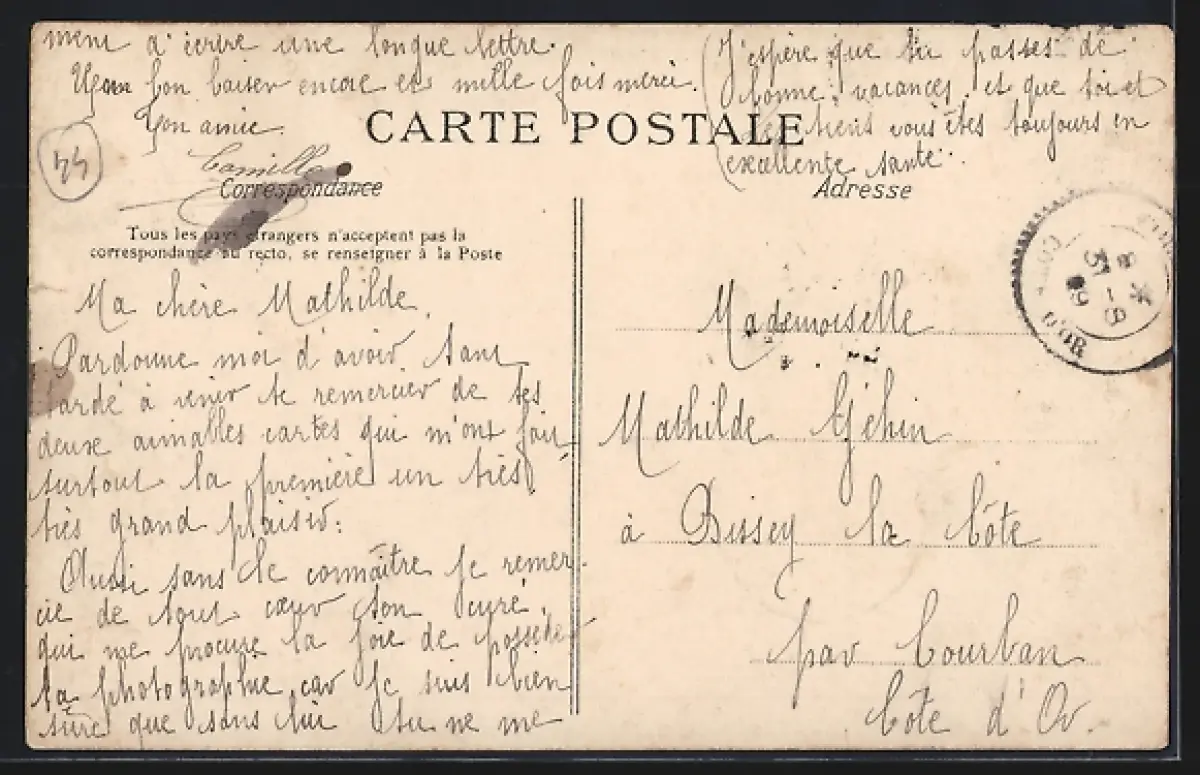 ment d'écrire une longue lettre.
Un bon baiser encore et mille fois merci.
Ton amie.
Camille
(J'espère que tu passes de
bonnes vacances, et que toi et
les tiens vous êtes toujours en
excellente santé.
CARTE POSTALE
44
Correspondance
Tous les pays étrangers n'acceptent pas la
correspondance au recto, se renseigner à la Poste
Ma chère Mathilde,
Pardonne moi d'avoir tant
tardé à venir te remercier de tes
deux aimables cartes qui m'ont fait
surtout la première un très,
très grand plaisir.
Aussi sans le connaître je remer-
cie de tout cœur ton curé,
qui me procure la joie de posséder
ta photographie, car je suis bien
sûre que sans lui tu ne me
Adresse
Mademoiselle
Mathilde Géhin
à Bissey la Côte
par Courban
Côte d'Or.
31 - 8
09
CÔTE D'OR